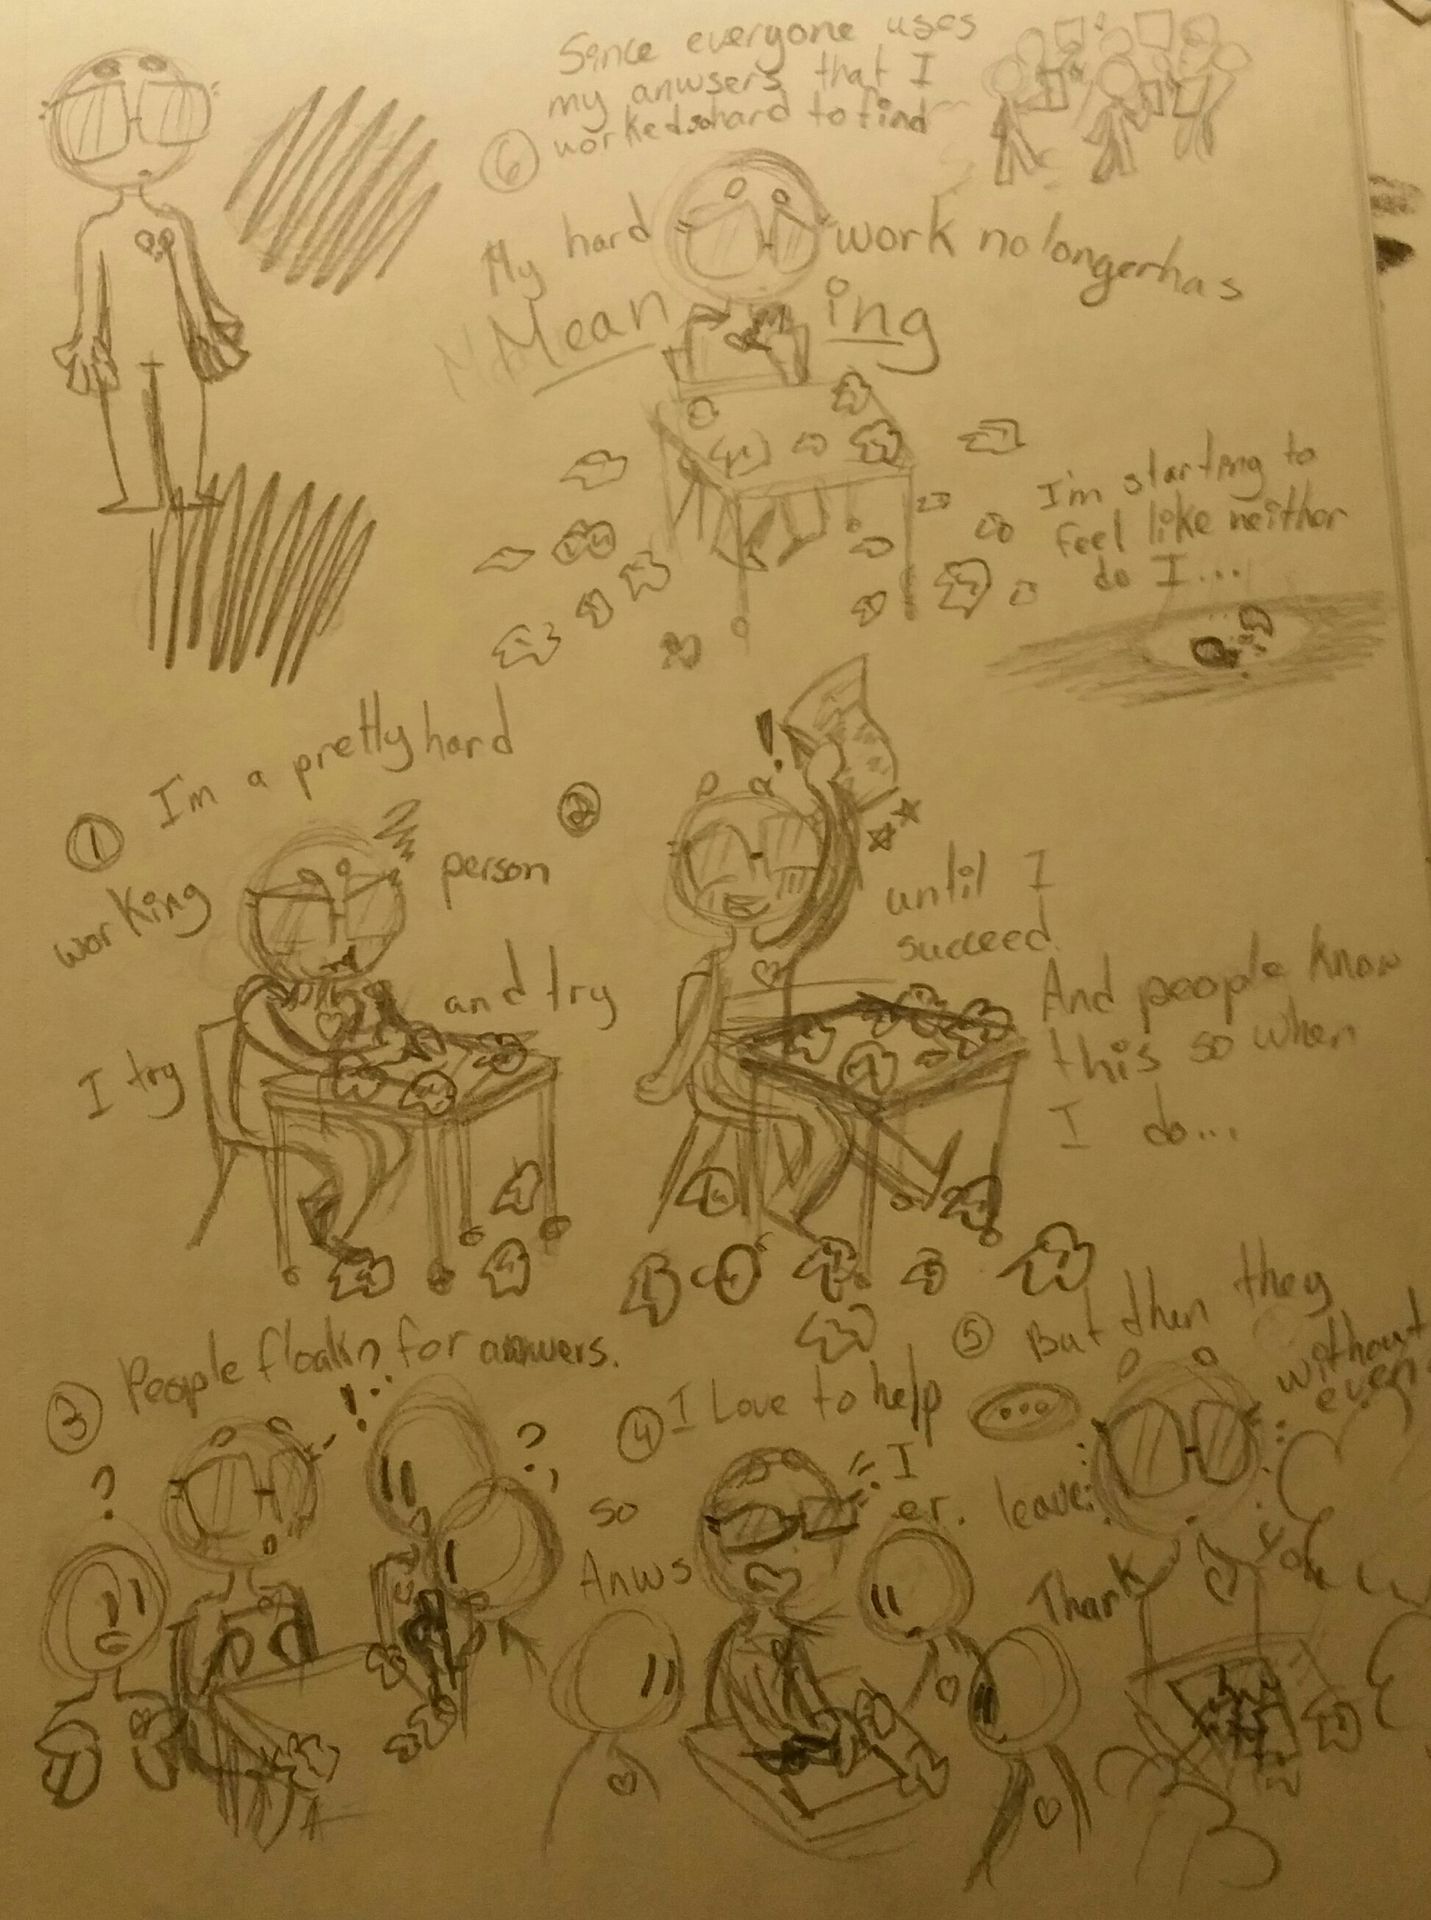 Since everyone uses
my anwsers that I
⑥ worked so hard to find
My hard work no longer has
Mean ing
I'm starting to
feel like neither
do I...
① I'm a pretty hard
working person
I try and try
②
until I
succeed.
And people know
this so when
I do...
③ People floakn for answers.
? !... ?
④ I Love to help
so I
Anws er.
⑤ But then they
... leave
without
even
Thank You